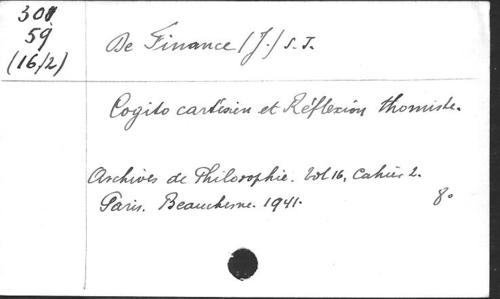 301
59
(16/2)
De Finance (J.) S.J.
Cogito cartésien et Réflexion thomiste.
Archives de Philosophie. Vol 16, Cahier 2.
Paris. Beauchesne. 1941. 8º